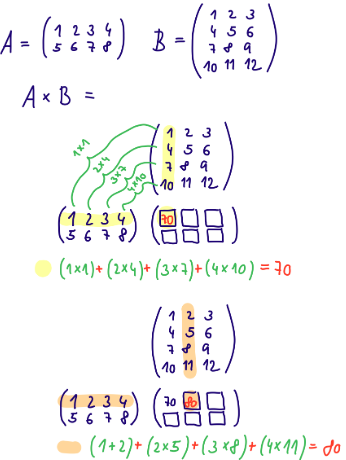 A = ( 1 2 3 4
5 6 7 8 ) B = ( 1 2 3
4 5 6
7 8 9
10 11 12 )
A × B =
1×1 2×4 3×7 4×10
( 1 2 3
4 5 6
7 8 9
10 11 12 )
( 1 2 3 4
5 6 7 8 ) ( 70 )
(1×1)+(2×4)+(3×7)+(4×10) = 70
( 1 2 3
4 5 6
7 8 9
10 11 12 )
( 1 2 3 4
5 6 7 8 ) ( 70 80 )
(1+2)+(2×5)+(3×8)+(4×11)= 80